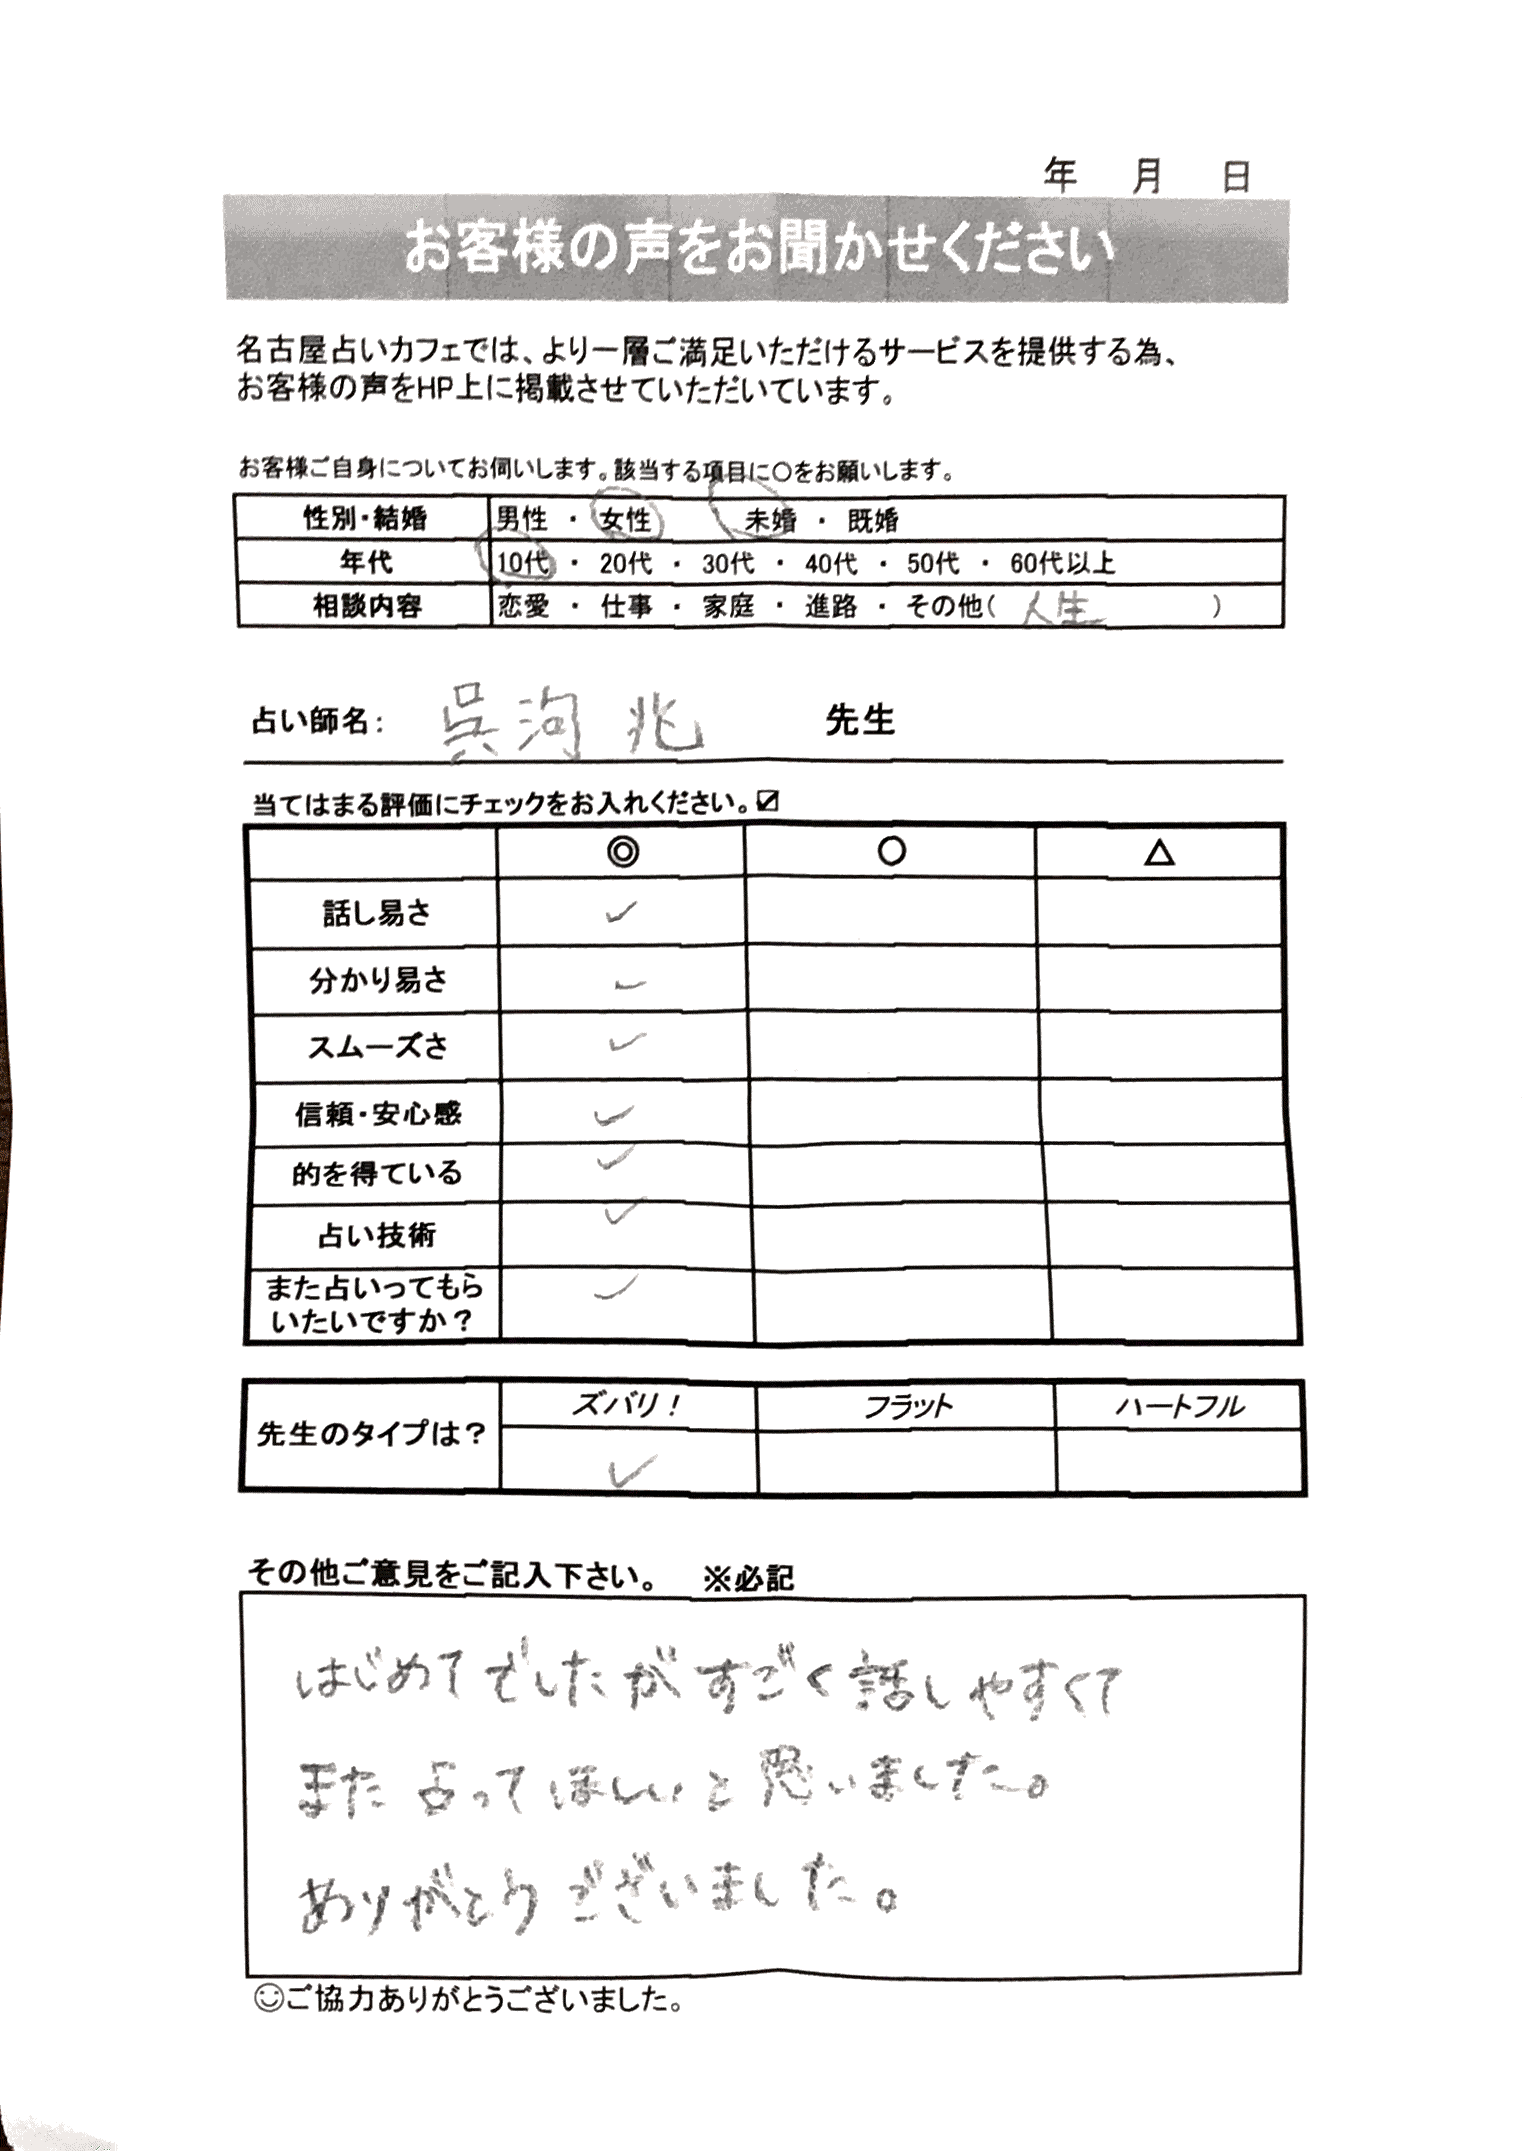 年 月 日
お客様の声をお聞かせください
名古屋占いカフェでは、より一層ご満足いただけるサービスを提供する為、
お客様の声をHP上に掲載させていただいています。
お客様ご自身についてお伺いします。該当する項目に○をお願いします。
性別・結婚 男性 ・ 女性 未婚 ・ 既婚
年代 10代 ・ 20代 ・ 30代 ・ 40代 ・ 50代 ・ 60代以上
相談内容 恋愛 ・ 仕事 ・ 家庭 ・ 進路 ・ その他( 人生 )
占い師名: 呉泃 兆 先生
当てはまる評価にチェックをお入れください。☑
◎ ○ △
話し易さ ✓
分かり易さ ✓
スムーズさ ✓
信頼・安心感 ✓
的を得ている ✓
占い技術 ✓
また占いってもら
いたいですか? ✓
ズバリ! フラット ハートフル
先生のタイプは? ✓
その他ご意見をご記入下さい。 ※必記
はじめてでしたがすごく話しやすくて
また占ってほしいと思いました。
ありがとうございました。
☺ご協力ありがとうございました。